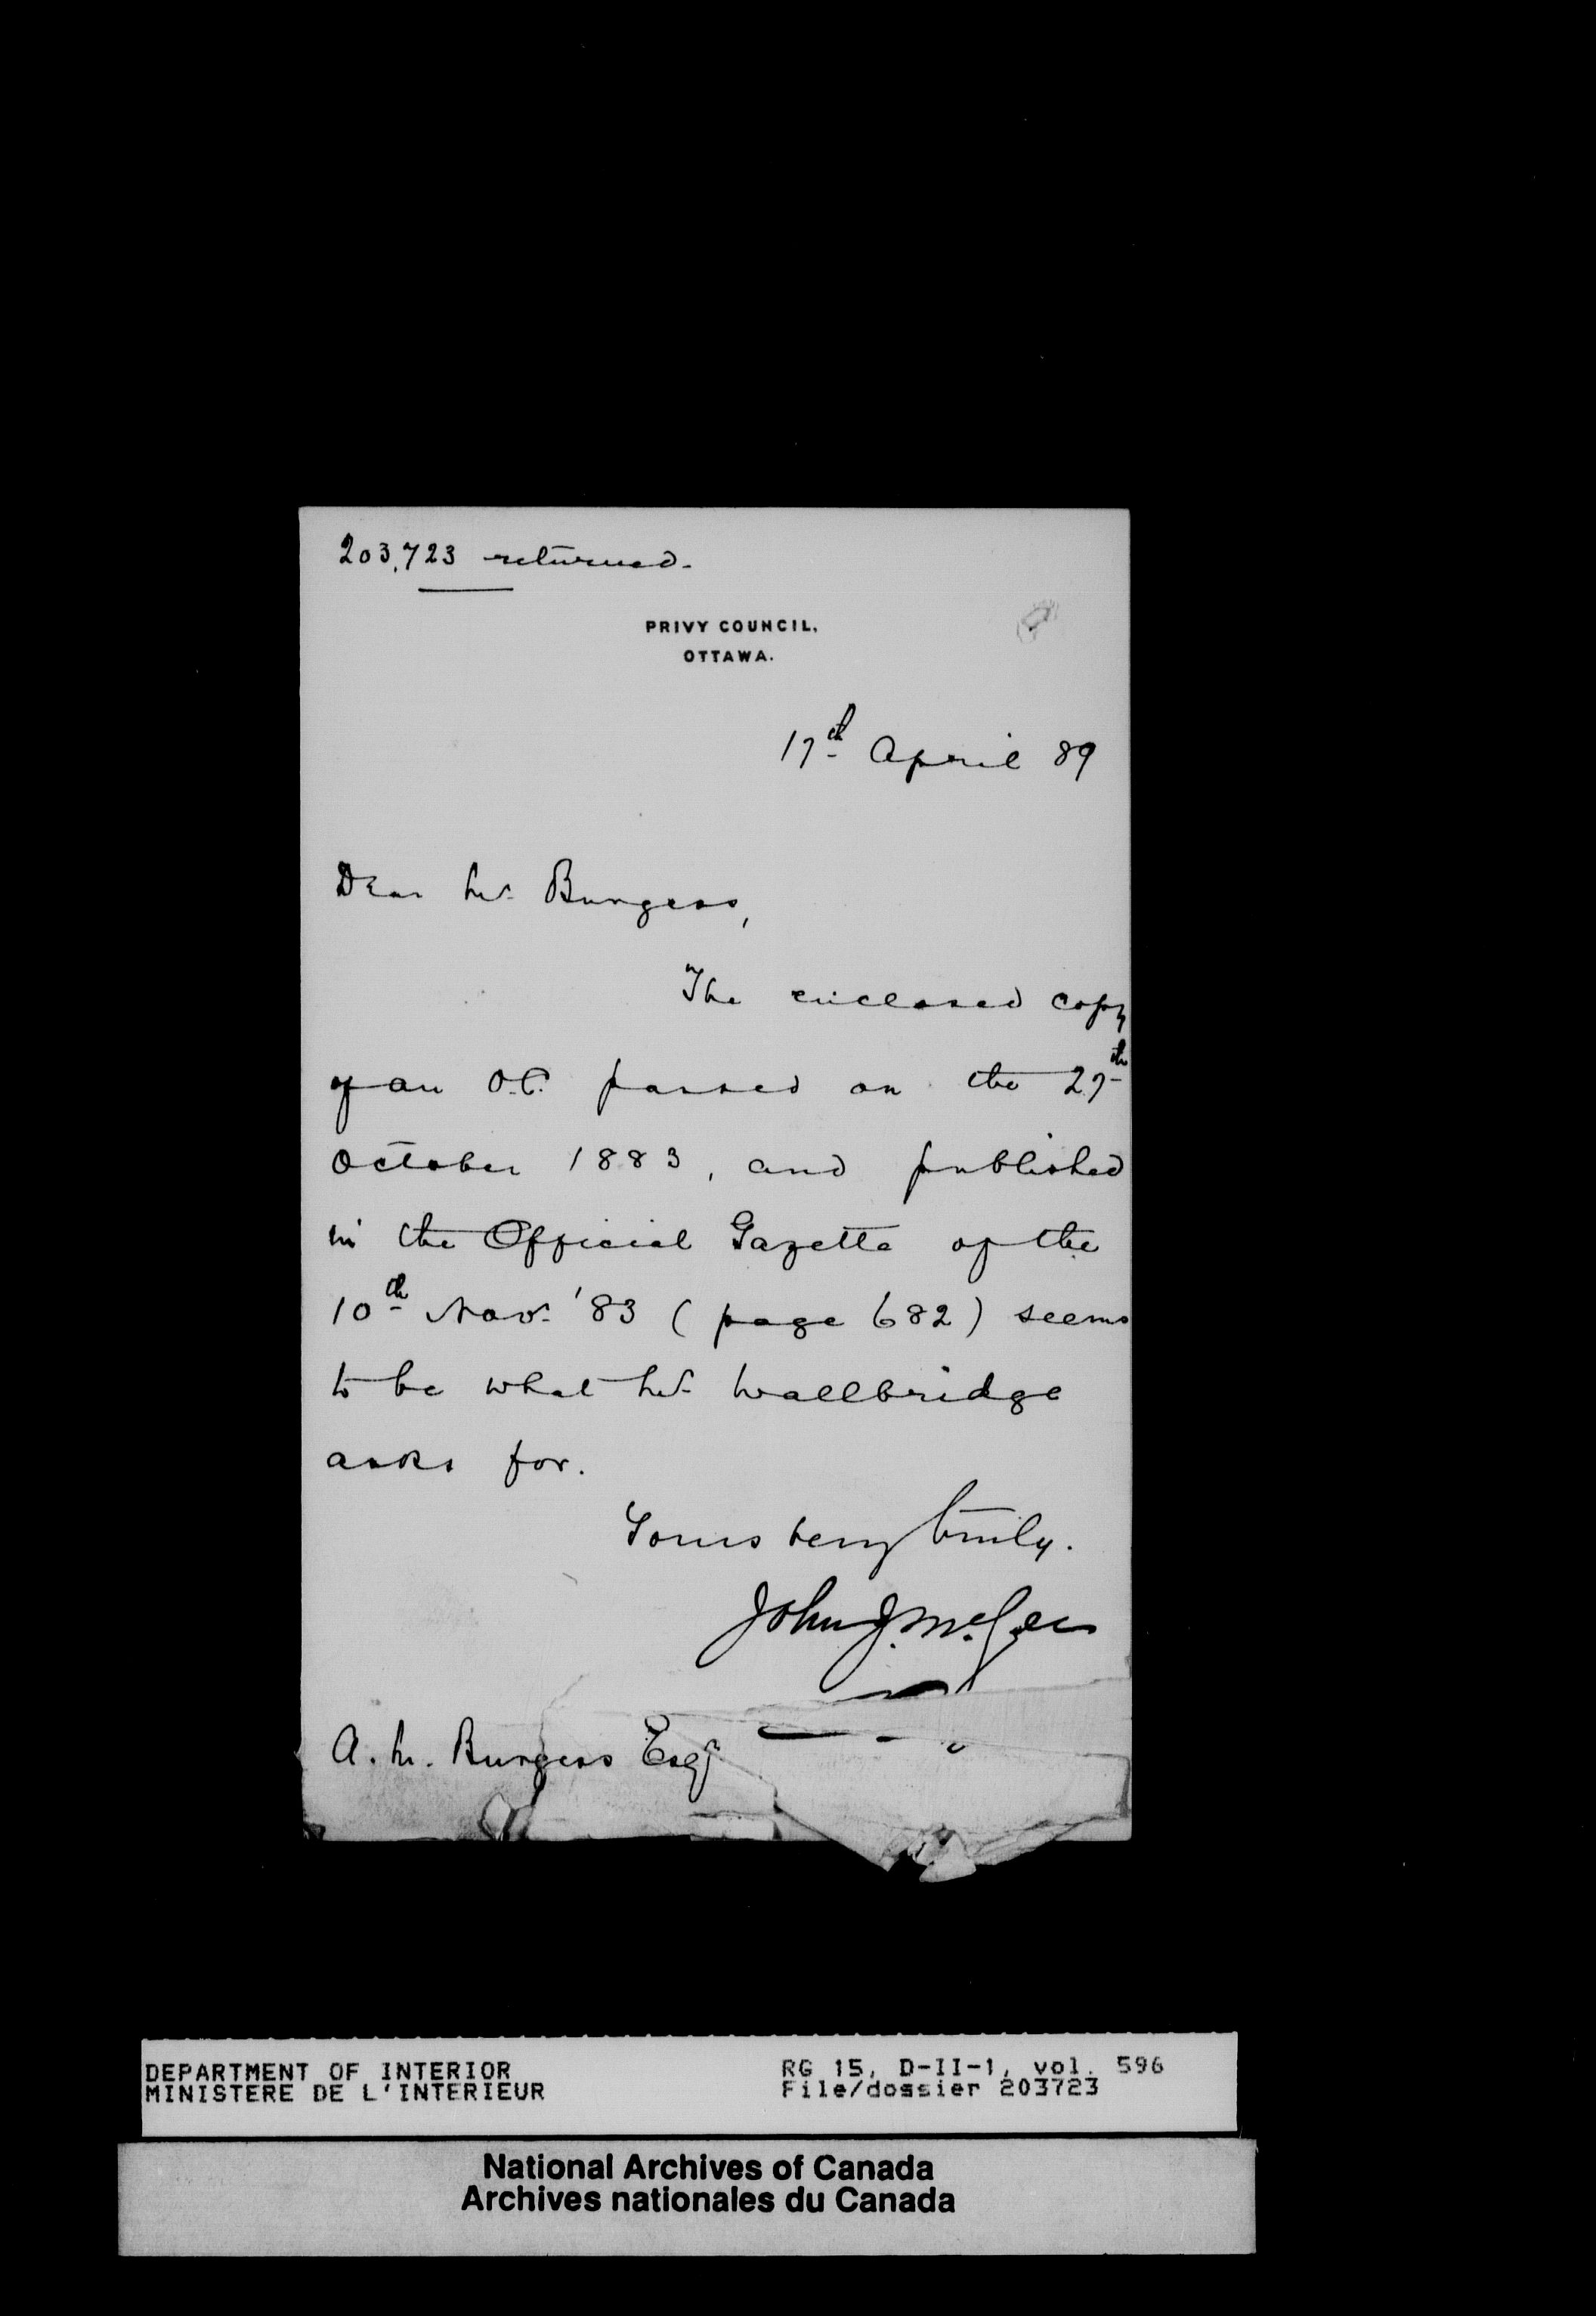 203,723 returned.
PRIVY COUNCIL,
OTTAWA.
17th April 89
Dear Mr. Burgess,
The enclosed copy
of an O.C. passed on the 27th
October 1883, and published
in the Official Gazette of the
10th Nov. '83 (page 682) seems
to be what Mr. Wallbridge
asks for.
Yours very truly.
John J. McGee
A. M. Burgess Esqr
DEPARTMENT OF INTERIOR
MINISTERE DE L'INTERIEUR
RG 15, D-II-1, vol. 596
File/dossier 203723
National Archives of Canada
Archives nationales du Canada